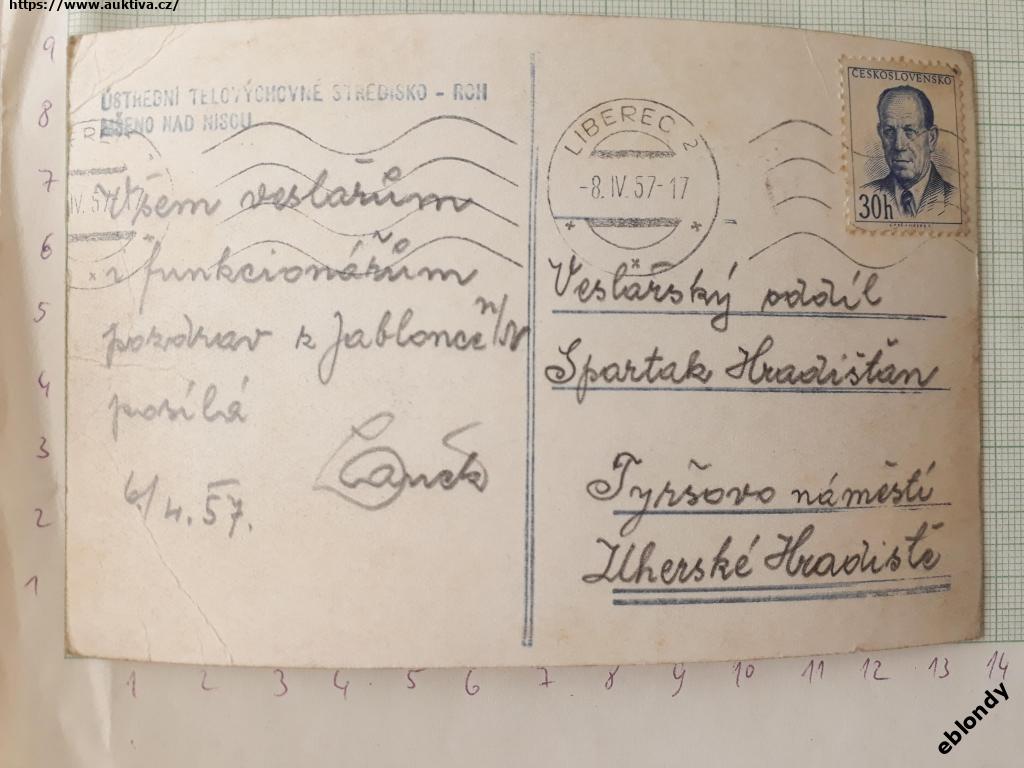 https://www.auktiva.cz/
ÚSTŘEDNÍ TĚLOVÝCHOVNÉ STŘEDISKO - ROH
MŠENO NAD NISOU
LIBEREC 2
-8.IV.57-17
ČESKOSLOVENSKO
30h
Všem veslařům
i funkcionářům
pozdrav z Jablonce n/N
posílá
6/4.57.
Veslářský oddíl
Spartak Hradišťan
Tyršovo náměstí
Uherské Hradiště
9
8
7
6
5
4
3
2
1
1 2 3 4 5 6 7 8 9 10 11 12 13 14
eblondy